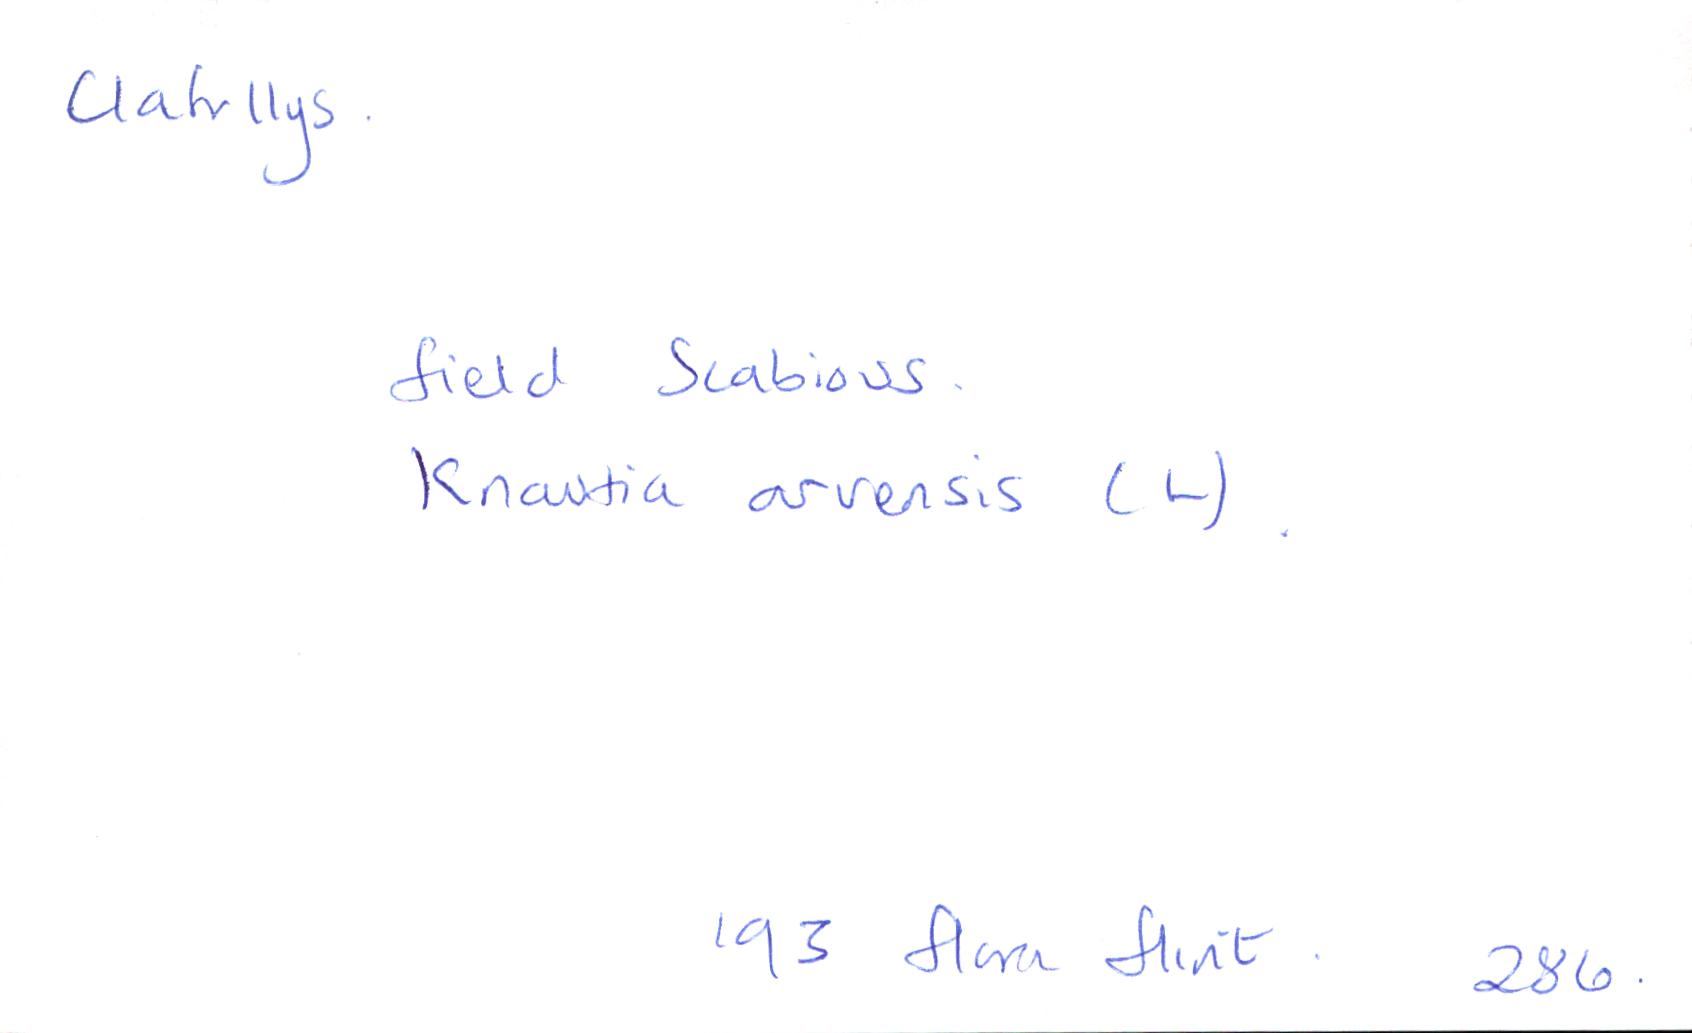 Clafrllys.
field Scabious.
Knautia arvensis (L).
193 flora flint. 286.